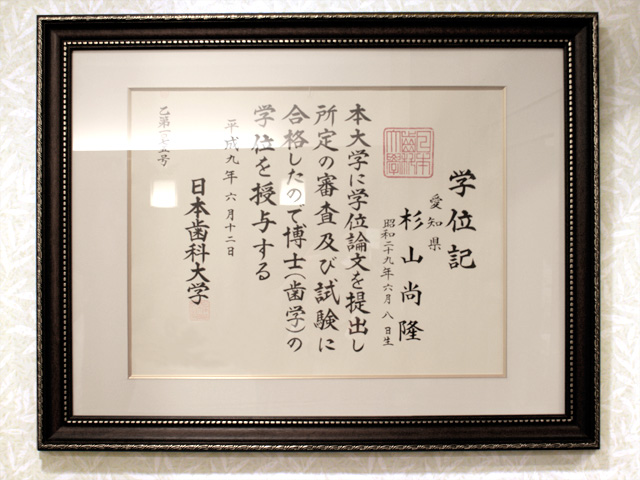 学位記
愛知県
杉山尚隆
昭和二十九年六月八日生
本大学に学位論文を提出し
所定の審査及び試験に
合格したので博士（歯学）の
学位を授与する
平成九年六月十二日
日本歯科大学